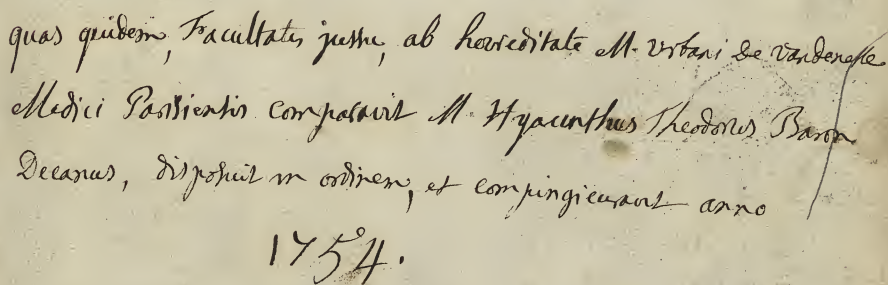 quas quidem, Facultatis jussu, ab hoereditate M. Urbani De vandenesse
Medici Parisiensis comparavit M. Hyacinthus Theodorus Baron
Decanus, disposuit in ordinem, et compingi curavit anno
1754.